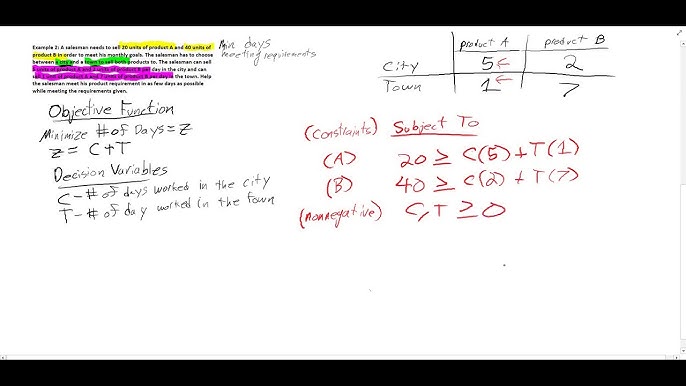 Example 2: A salesman needs to sell 20 units of product A and 40 units of
product B in order to meet his monthly goals. The salesman has to choose
between a city and a town to sell both products to. The salesman can sell
5 units of product A and 2 units of product B per day in the city and can
sell 1 unit of product A and 7 units of product B per day in the town. Help
the salesman meet his product requirement in as few days as possible
while meeting the requirements given.
Min days
meeting requirements
product A product B
City 5← 2
Town 1← 7
Objective Function
Minimize # of Days = Z
Z = C+T
Decision Variables
C - # of days worked in the city
T - # of day worked in the town
(constraints) Subject To
(A) 20 ≥ C(5) + T(1)
(B) 40 ≥ C(2) + T(7)
(nonnegative) C, T ≥ 0